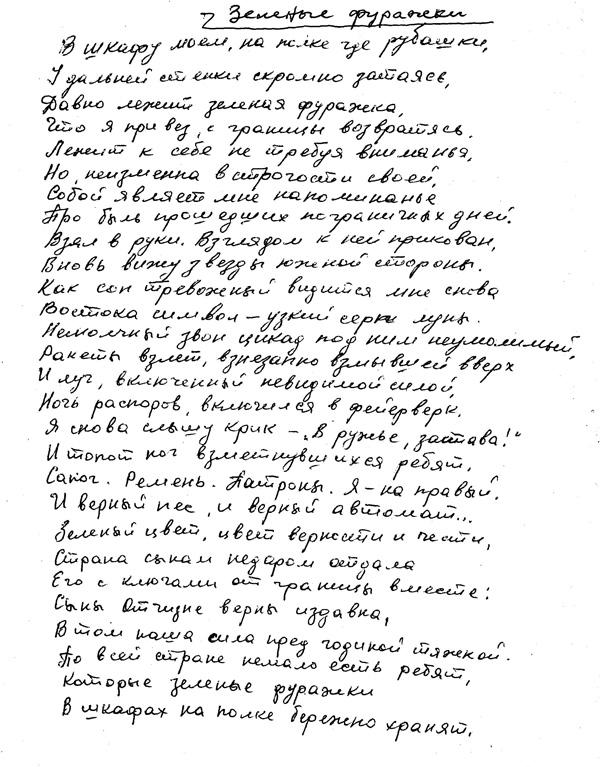 7 Зеленые фуражки
В шкафу моем, на полке где рубашки,
У дальней стенки скромно затаясь,
Давно лежит зеленая фуражка,
Что я привез, с границы возвратясь.
Лежит к себе не требуя вниманья,
Но, неизменна в строгости своей,
Собой являет мне напоминанье
Про быль прошедших пограничных дней.
Взял в руки. Взглядом к ней прикован,
Вновь вижу звезды южной стороны.
Как сон тревожный видится мне снова
Востока символ – узкий серп луны.
Немолчный звон цикад под ним неумолимый,
Ракеты взлет, внезапно взмывшей вверх
И луч, включенный невидимой силой,
Ночь распоров, включился в фейерверк.
Я снова слышу крик – „В ружье, застава!"
И топот ног взметнувшихся ребят.
Сапог. Ремень. Патроны. Я – на правый.
И верный пес, и верный автомат...
Зеленый цвет, цвет верности и чести,
Страна сынам недаром отдала
Его с ключами от границы вместе:
Сыны Отчизне верны издавна,
В том наша сила пред годиной тяжкой.
По всей стране немало есть ребят,
Которые зеленые фуражки
В шкафах на полке бережно хранят.